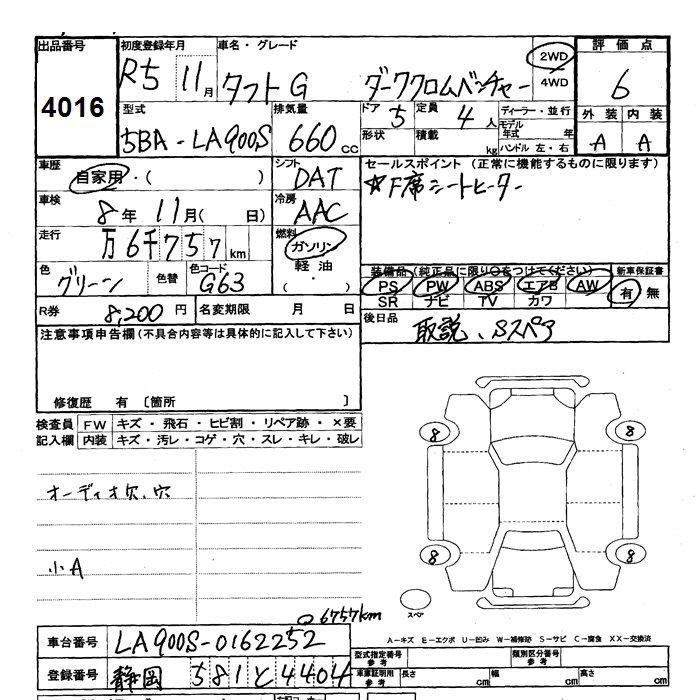 出品番号
4016
初度登録年月
R5 11月
車名・グレード
タフト G ダーククロムベンチャー
2WD
4WD
評価点
6
外装 内装
A A
型式
5BA-LA900S
排気量
660cc
ドア 5
定員 4人
形状 積載 kg
ディーラー・並行
モデル年式 年
ハンドル 左・右
車歴
自家用・( )
シフト
DAT
セールスポイント (正常に機能するものに限ります)
☆F席シートヒーター
車検
8年 11月( 日)
冷房
AAC
走行
万6千757km
燃料
ガソリン
軽油
( ・ )
色
グリーン
色替
色コード
G63
装備品 (純正品に限り○をつけてください)
PS PW ABS エアB AW
SR ナビ TV カワ
新車保証書
有 無
R券 8,200円
名変期限 月 日
後日品
取説、Sスペア
注意事項申告欄(不具合内容等は具体的に記入して下さい)
修復歴 有 〔箇所 〕
検査員 FW キズ・飛石・ヒビ割・リペア跡・×要
記入欄 内装 キズ・汚レ・コゲ・穴・スレ・キレ・破レ
オーディオ欠、穴
小A
8 8
8 8
スペア
6757km
A-キズ E-エクボ U-凹み W-補修跡 S-サビ C-腐食 XX-交換済
車台番号 LA900S-0162252
登録番号 静岡 581 と 4404
型式指定番号 参考
類別区分番号 参考
車庫証明用 参考
長さ cm 幅 cm 高さ cm